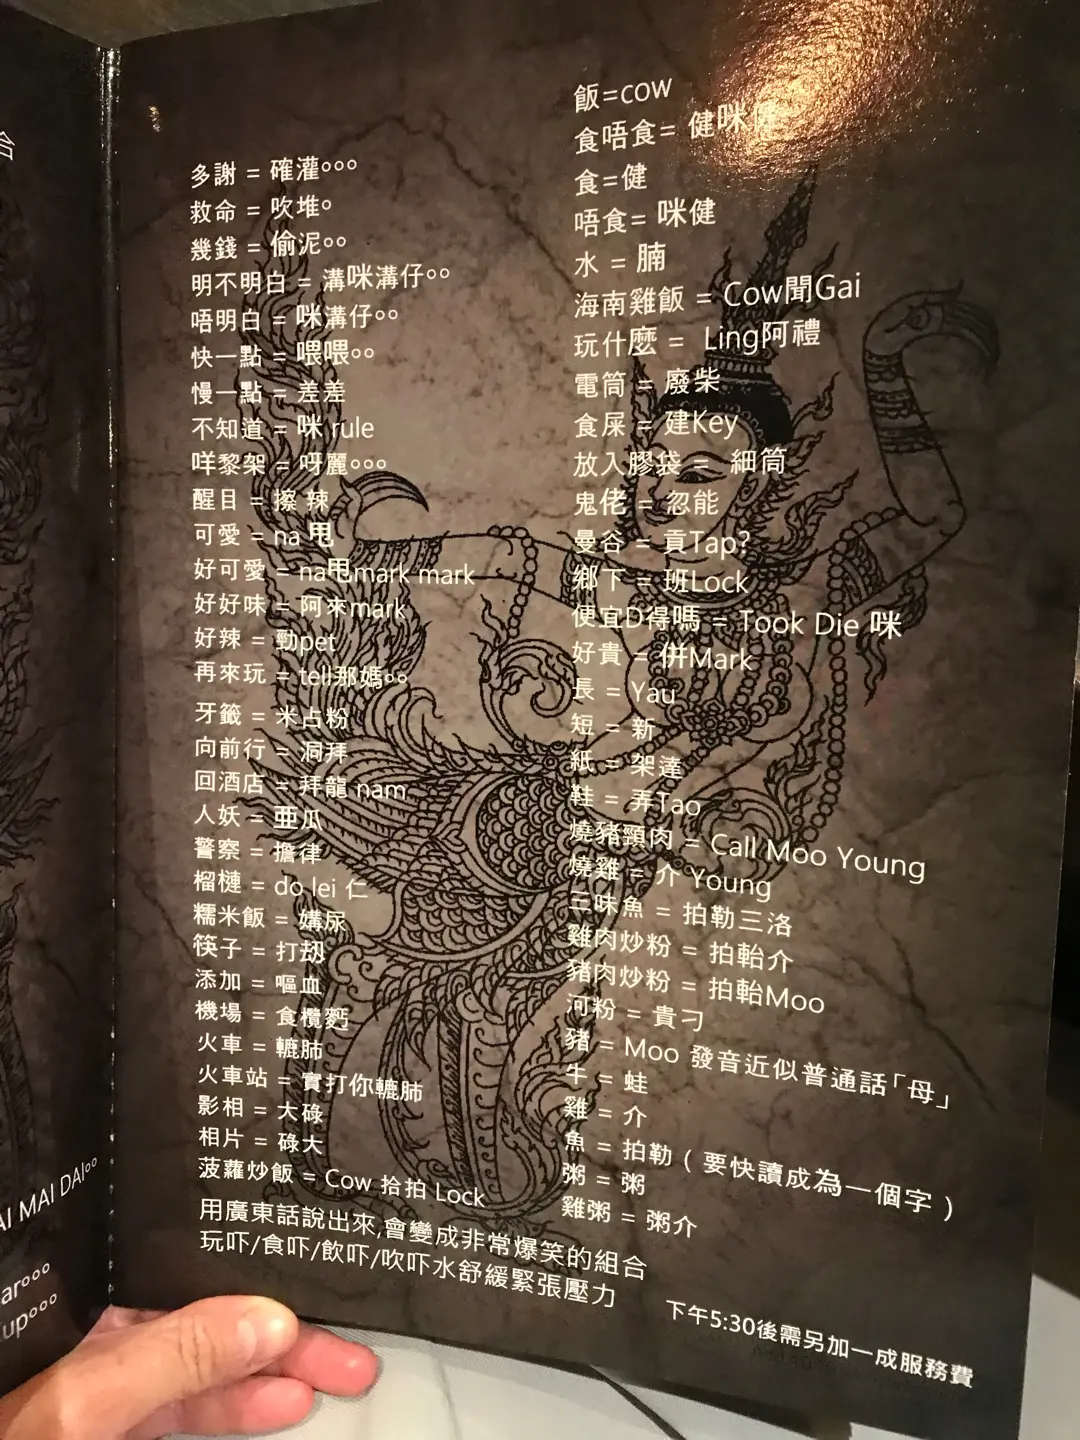 合
AI MAI DAI°°
ar°°°
up°°°
多謝 = 確灌°°°
救命 = 吹堆°
幾錢 = 偷泥°°
明不明白 = 溝咪溝仔°°
唔明白 = 咪溝仔°°
快一點 = 喂喂°°
慢一點 = 差差
不知道 = 咪 rule
咩黎架 = 呀麗°°°
醒目 = 擦 辣
可愛 = na 甩
好可愛 = na甩mark mark
好好味 = 阿來mark
好辣 = 勁pet
再來玩 = tell那媽°°
牙籤 = 米占粉
向前行 = 洞拜
回酒店 = 拜龍 nam
人妖 = 亜瓜
警察 = 擔律
榴槤 = do lei 仁
糯米飯 = 媾尿
筷子 = 打刼
添加 = 嘔血
機場 = 食欖麪
火車 = 轆肺
火車站 = 實打你轆肺
影相 = 大碌
相片 = 碌大
菠蘿炒飯 = Cow 拾拍 Lock
用廣東話說出來,會變成非常爆笑的組合
玩吓/食吓/飲吓/吹吓水舒緩緊張壓力
飯=cow
食唔食= 健咪健
食=健
唔食= 咪健
水 = 腩
海南雞飯 = Cow聞Gai
玩什麼 = Ling阿禮
電筒 = 廢柴
食屎 = 建Key
放入膠袋 = 細筒
鬼佬 = 忽能
曼谷 = 貢Tap?
鄉下 = 班Lock
便宜D得嗎 = Took Die 咪
好貴 = 併Mark
長 = Yau
短 = 新
紙 = 架達
鞋 = 弄Tao
燒豬頸肉 = Call Moo Young
燒雞 = 介 Young
三味魚 = 拍勒三洛
雞肉炒粉 = 拍軩介
豬肉炒粉 = 拍軩Moo
河粉 = 貴刁
豬 = Moo 發音近似普通話「母」
牛 = 蛙
雞 = 介
魚 = 拍勒 ( 要快讀成為一個字 )
粥 = 粥
雞粥 = 粥介
下午5:30後需另加一成服務費